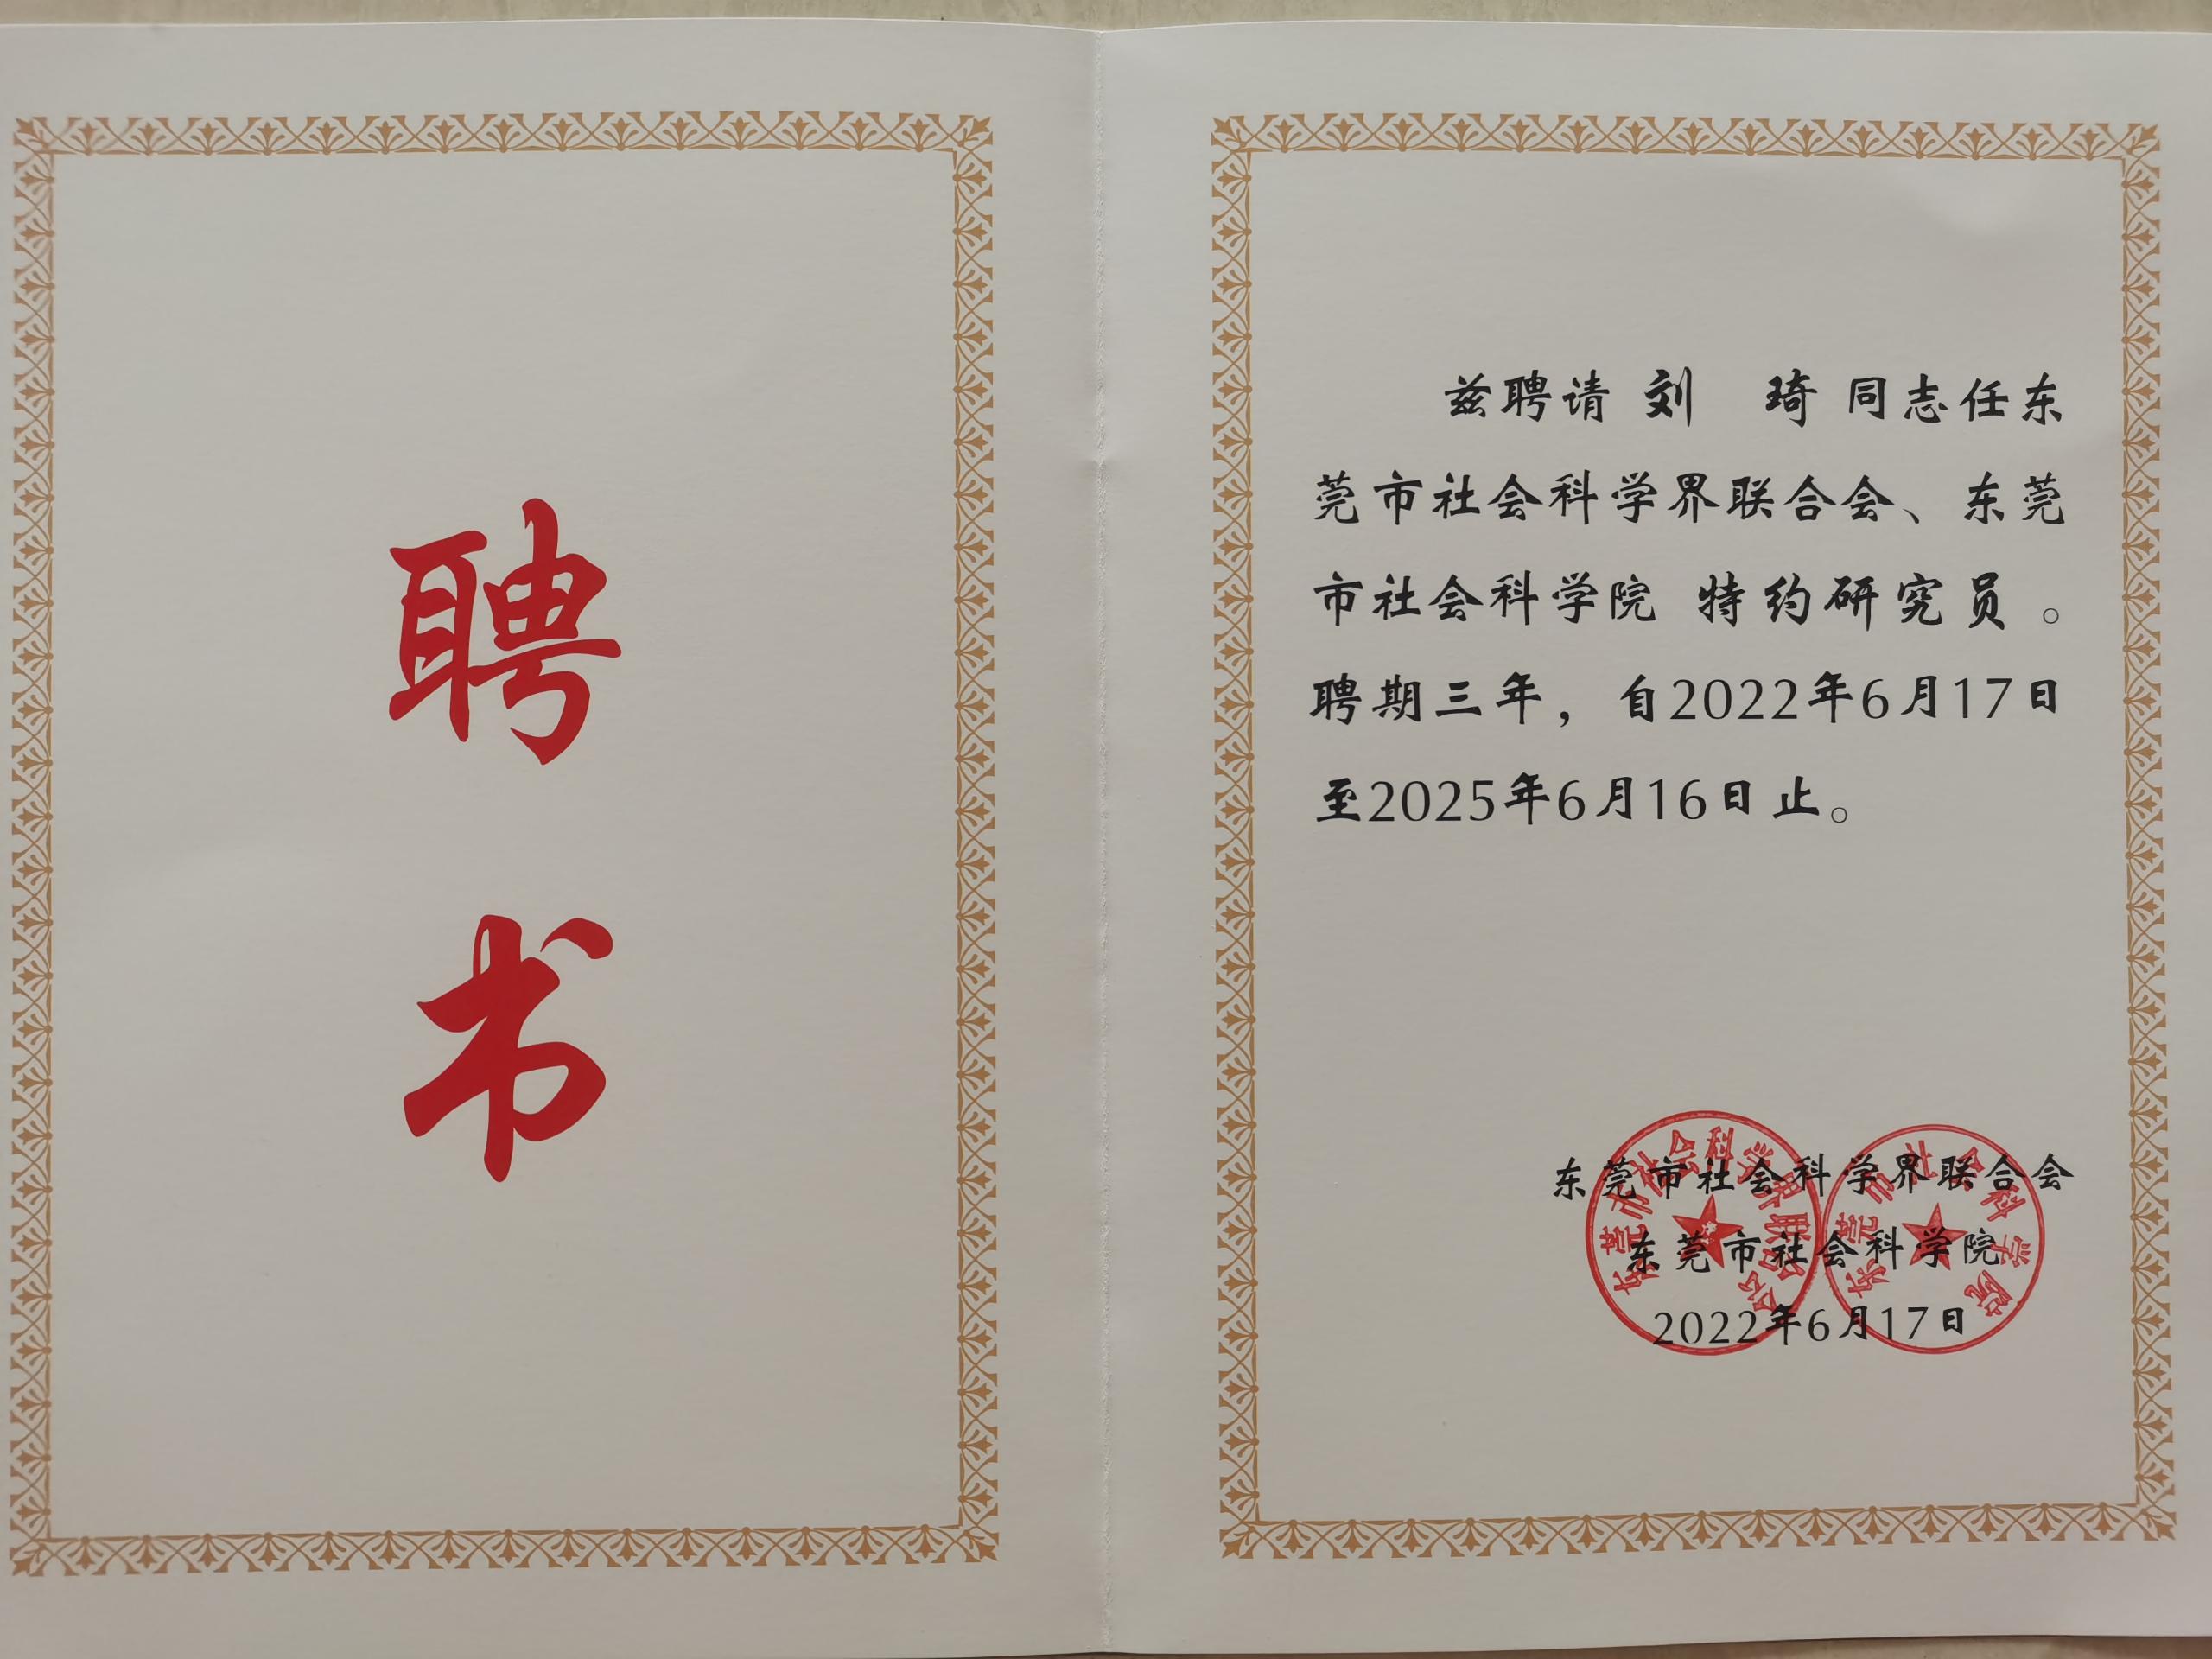 聘
书
兹聘请 刘 琦 同志任东
莞市社会科学界联合会、东莞
市社会科学院 特约研究员 。
聘期三年，自2022年6月17日
至2025年6月16日止。
东莞市社会科学界联合会
东莞市社会科学院
2022年6月17日
东莞市社会科学界联合会
东莞市社会科学院